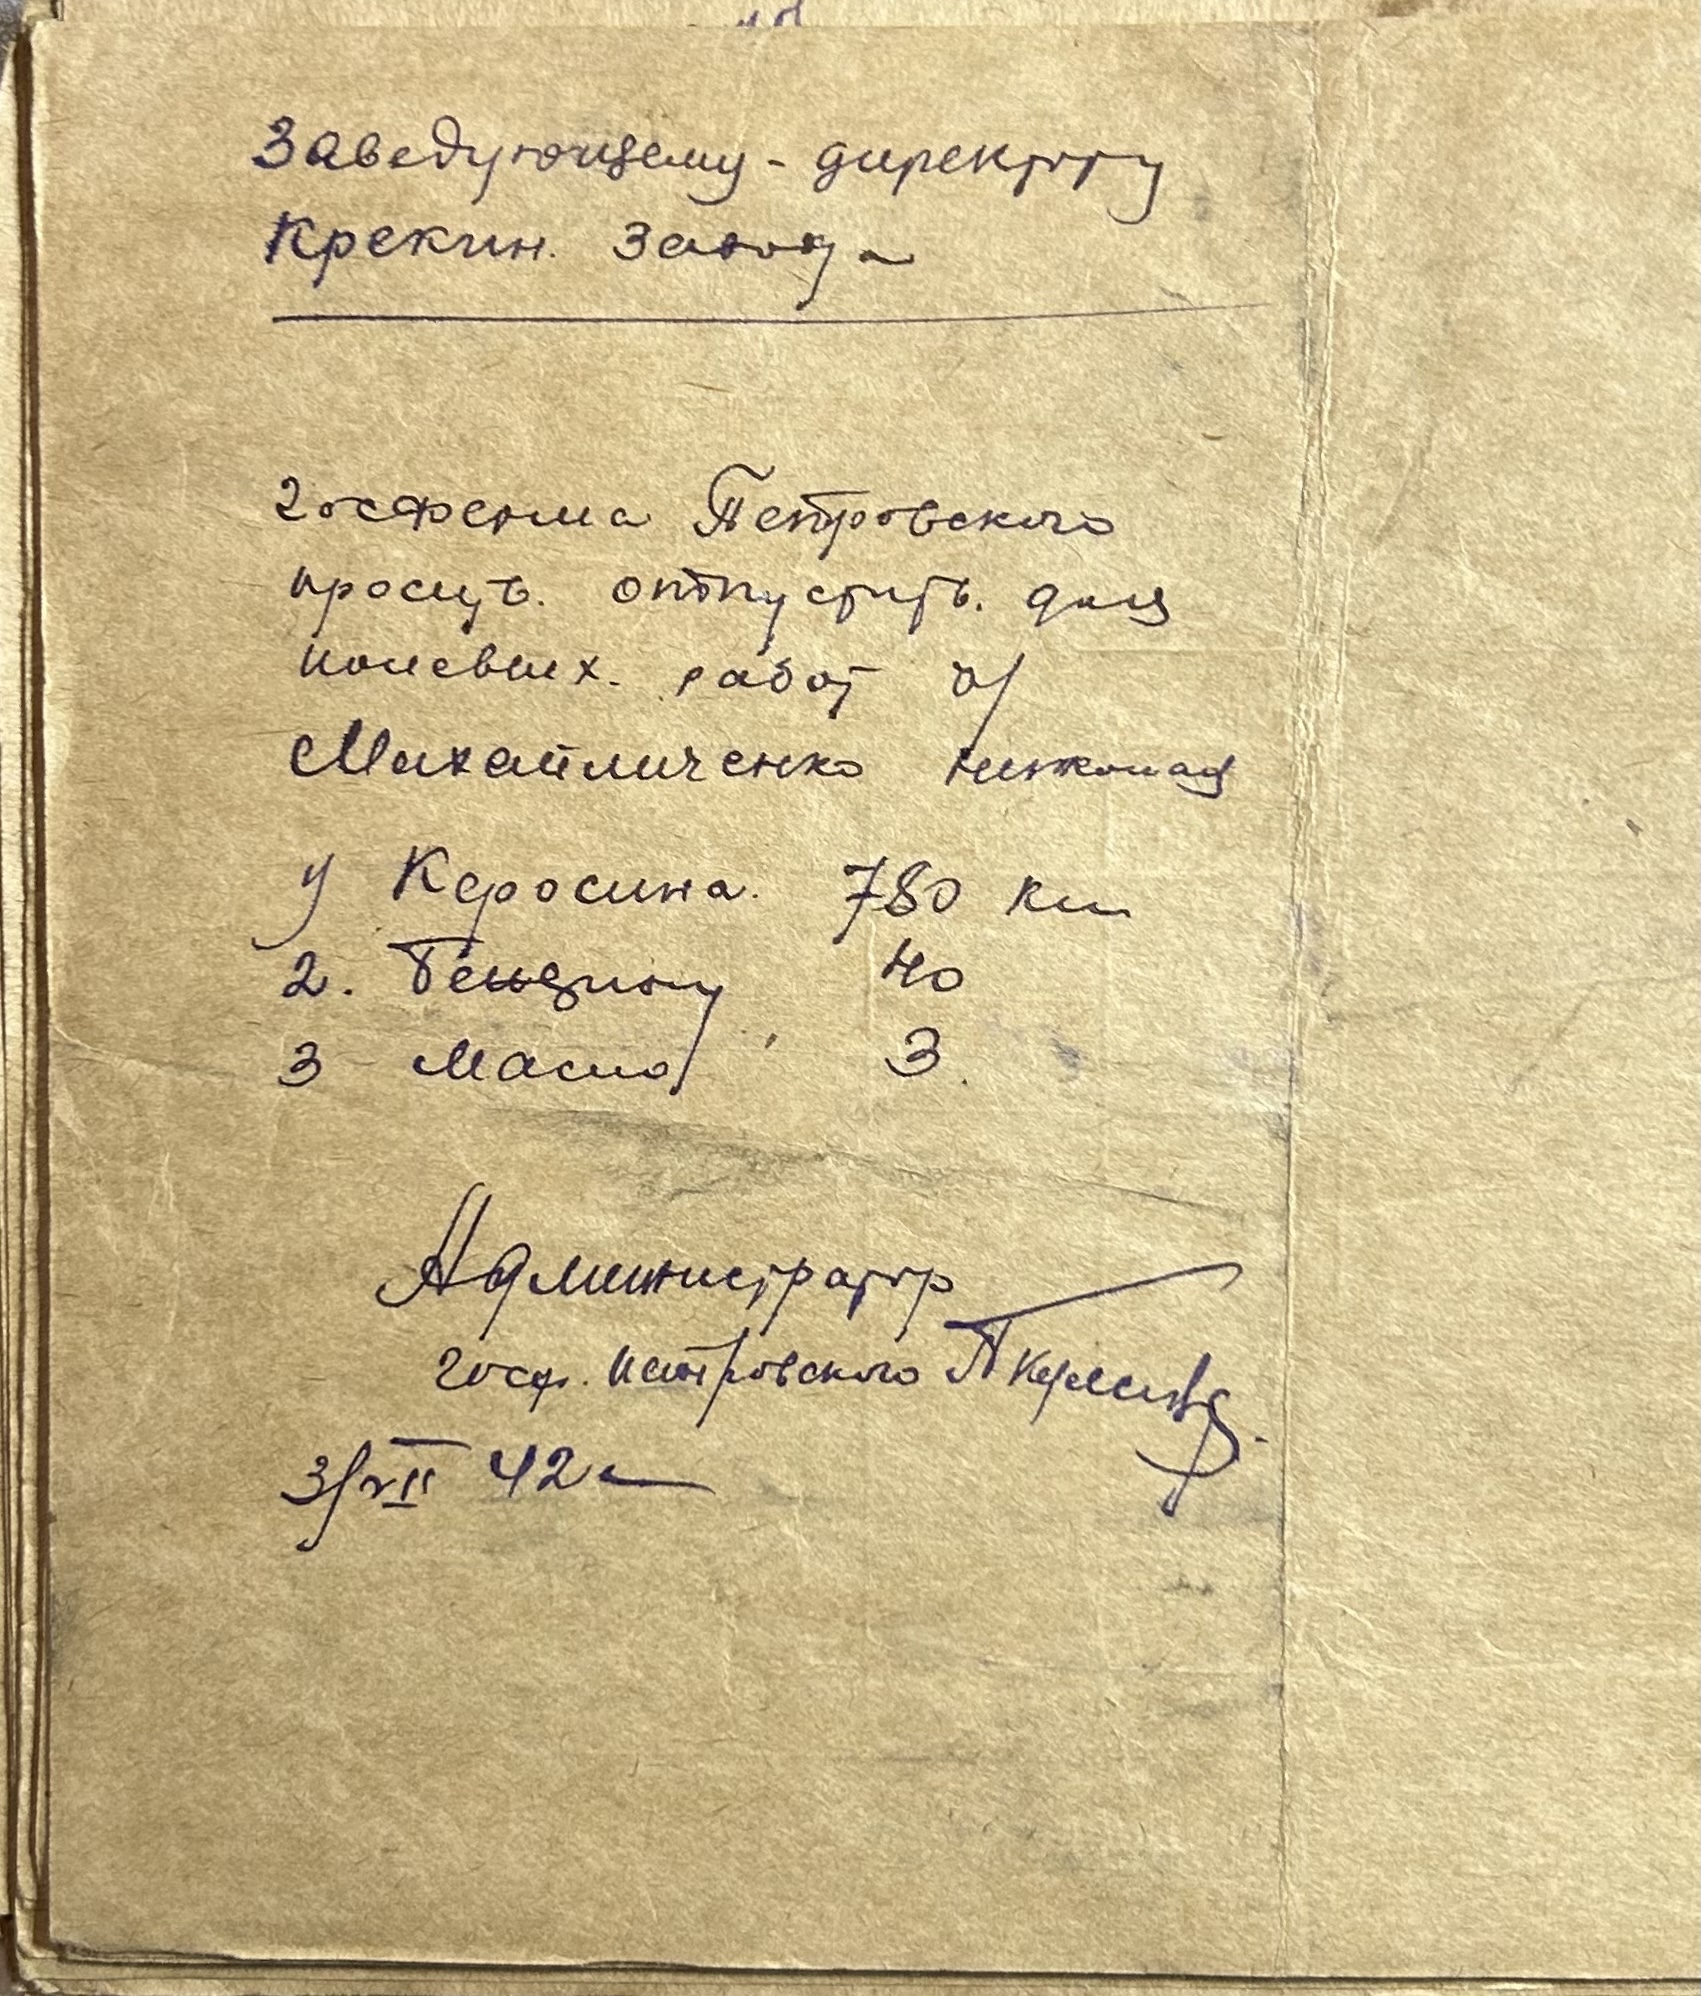 Заведующему - директору
Крекин. завода
госферма Петровского
просить. отпустить. для
полевых. работ ч/
Михайличенко Николая
1) Керосина. 780 кил
2. Бензину 40
3 Масла 3.
Администратор
госф. Петровского
3/VII 42 г